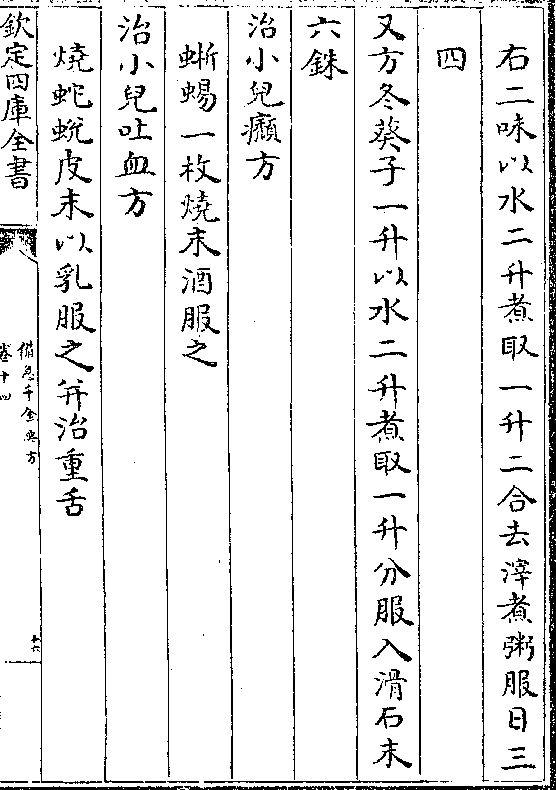 右二味以水二升煮取一升二合去滓煮粥服日三
四
又方冬葵子一升以水二升煮取一升分服入滑石末
六銖
治小兒癩方
蜥蜴一枚燒末酒服之
治小兒吐血方
燒蛇蛻皮末以乳服之并治重舌
欽定四庫全書
備急千金要方
卷十四